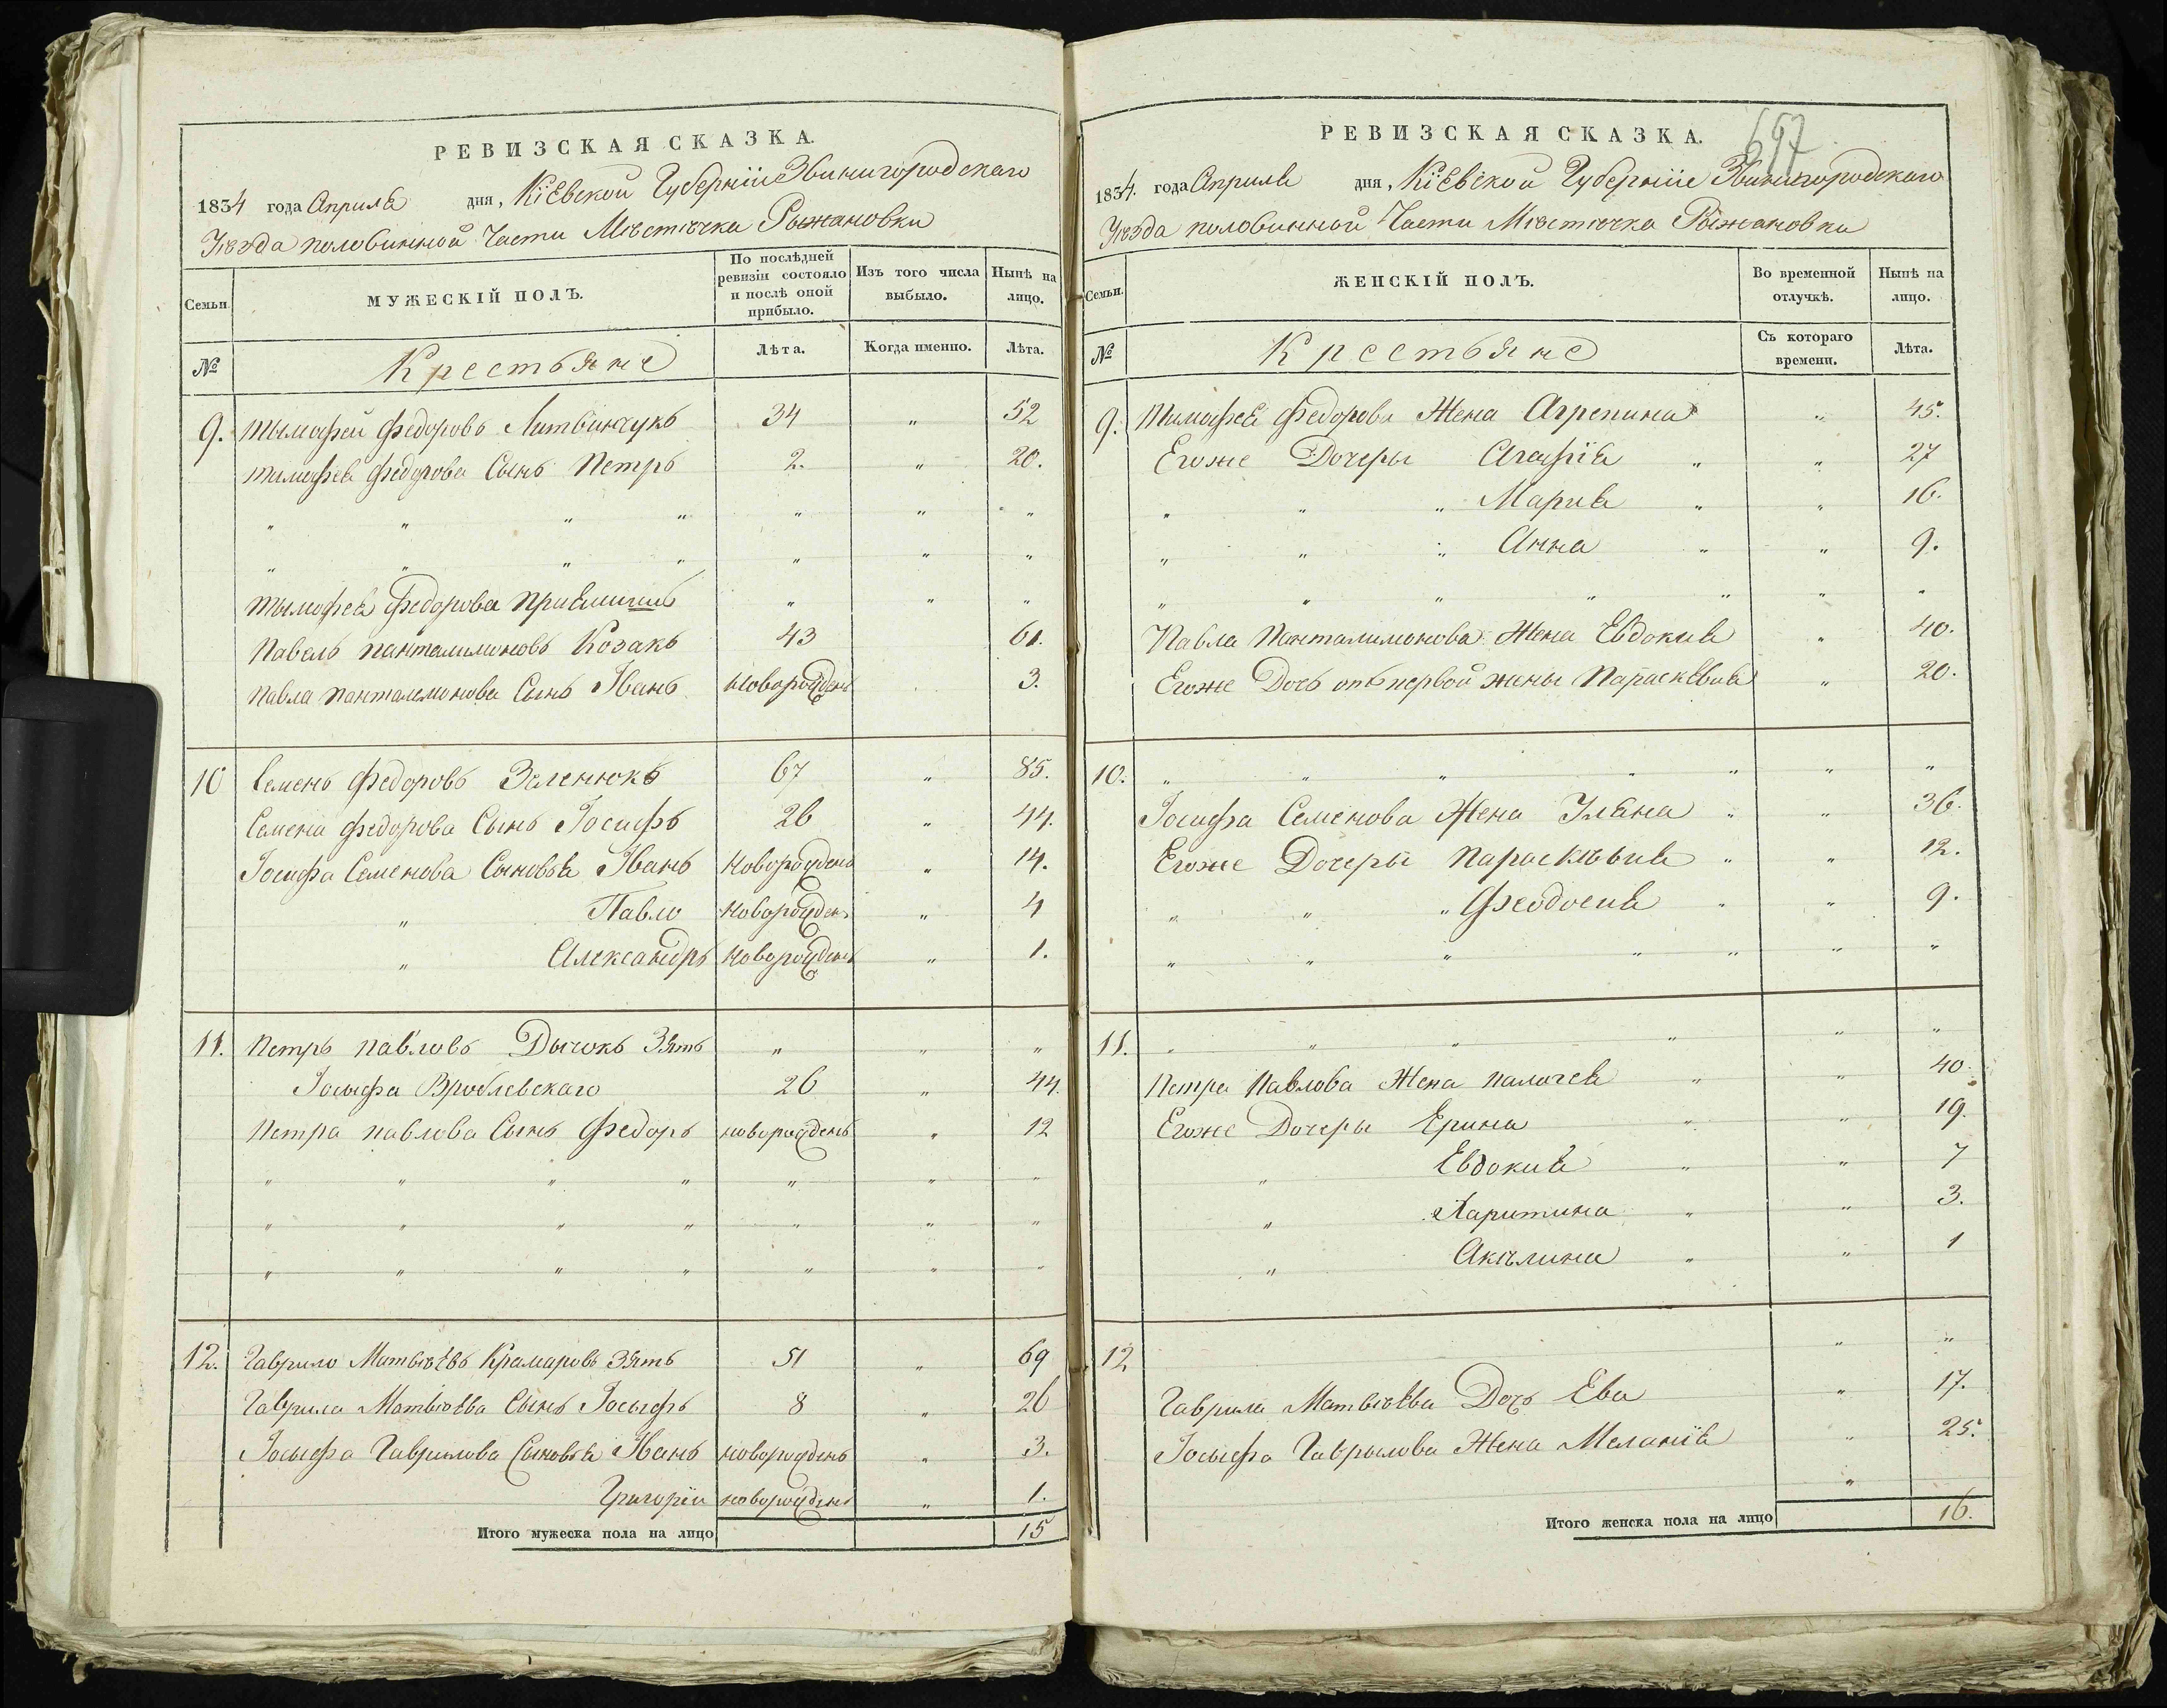 РЕВИЗСКАЯ СКАЗКА.
1834 года Апреля дня, Кіевской Губерніи Звинигородскаго
Уѣзда половинной Части Мѣстѣчка Рыжановки
Семьи
МУЖЕСКІЙ ПОЛЪ.
По послѣдней ревизіи состояло и послѣ оной прибыло.
Изъ того числа выбыло.
Нынѣ на лицо.
№
Крестьяне
Лѣта.
Когда именно.
Лѣта.
9. Тымофей Федоровъ Литвинчукъ 34 " 52
Тимофея Федорова Сынъ Петръ 2. " 20.
" " " " " " "
" " " " " " "
Тымофея Федорова Приемишъ " " "
Павелъ Панталимоновъ Козакъ 43 61.
Павла Панталемонова Сынъ Іванъ новорожденъ 3.
10 Семенъ Федоровъ Зеленюкъ 67 " 85.
Семена Федорова Сынъ Іосифъ 26 " 44.
Іосифа Семенова Сыновья Іванъ Новорожденъ " 14.
" Павло Новорожденъ " 4
" Александръ Новорожденъ " 1.
11. Петръ Павловъ Дычокъ Зять " " "
Іосыфа Вроблевскаго 26 " 44.
Петра Павлова Сынъ Федоръ новорожденъ " 12
" " " " " " "
" " " " " " "
" " " " " " "
12. Гаврило Матвѣевъ Крамаровъ Зять 51 " 69
Гаврила Матвѣева Сынъ Іосыфъ 8 " 26
Іосыфа Гаврилова Сыновья Іванъ новорожденъ " 3.
Григорій новорожденъ " 1.
Итого мужеска пола на лицо 15
697
РЕВИЗСКАЯ СКАЗКА.
1834. года Апреля дня, Кіевской Губерніи Звинигородскаго
Уѣзда половинной Части Мѣстѣчка Рыжановки
Семьи.
ЖЕНСКІЙ ПОЛЪ.
Во временной отлучкѣ.
Нынѣ на лицо.
№
Крестьяне
Съ котораго времени.
Лѣта.
9. Тимофея Федорова Жена Агрепина " 45.
Егоже Дочеры Агафія " " 27
" " " Мария " " 16.
" " " Анна " " 9.
" " " " " " "
Павла Панталимонова Жена Евдокия " 40.
Егоже Дочь отъ первой жены Параскевия " 20.
10. " " " " " " "
Іосифа Семенова Жена Уляна " " 36.
Егоже Дочеры Параскѣвия " " 12.
" " " Феодосия " " 9.
" " " " " " "
11. " " " " " "
Петра Павлова Жена Палагея " " 40.
Егоже Дочеры Ерина " " 19.
" Евдокия " " 7
" Харитина " " 3.
" Акѣлина " " 1
12 " "
Гаврила Матвѣева Дочь Ева " 17.
Іосыфа Гаврылова Жена Меланія " 25.
"
Итого женска пола на лицо 16.